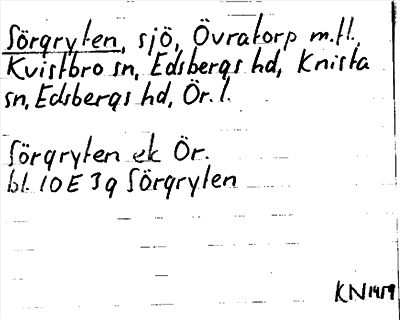 Sörgryten, sjö, Övratorp m.fl.
Kvistbro sn, Edsbergs hd, Knista
sn, Edsbergs hd, Ör. l.
Sörgryten ek Ör.
bl. 10 E 3g Sörgryten
KN 1959